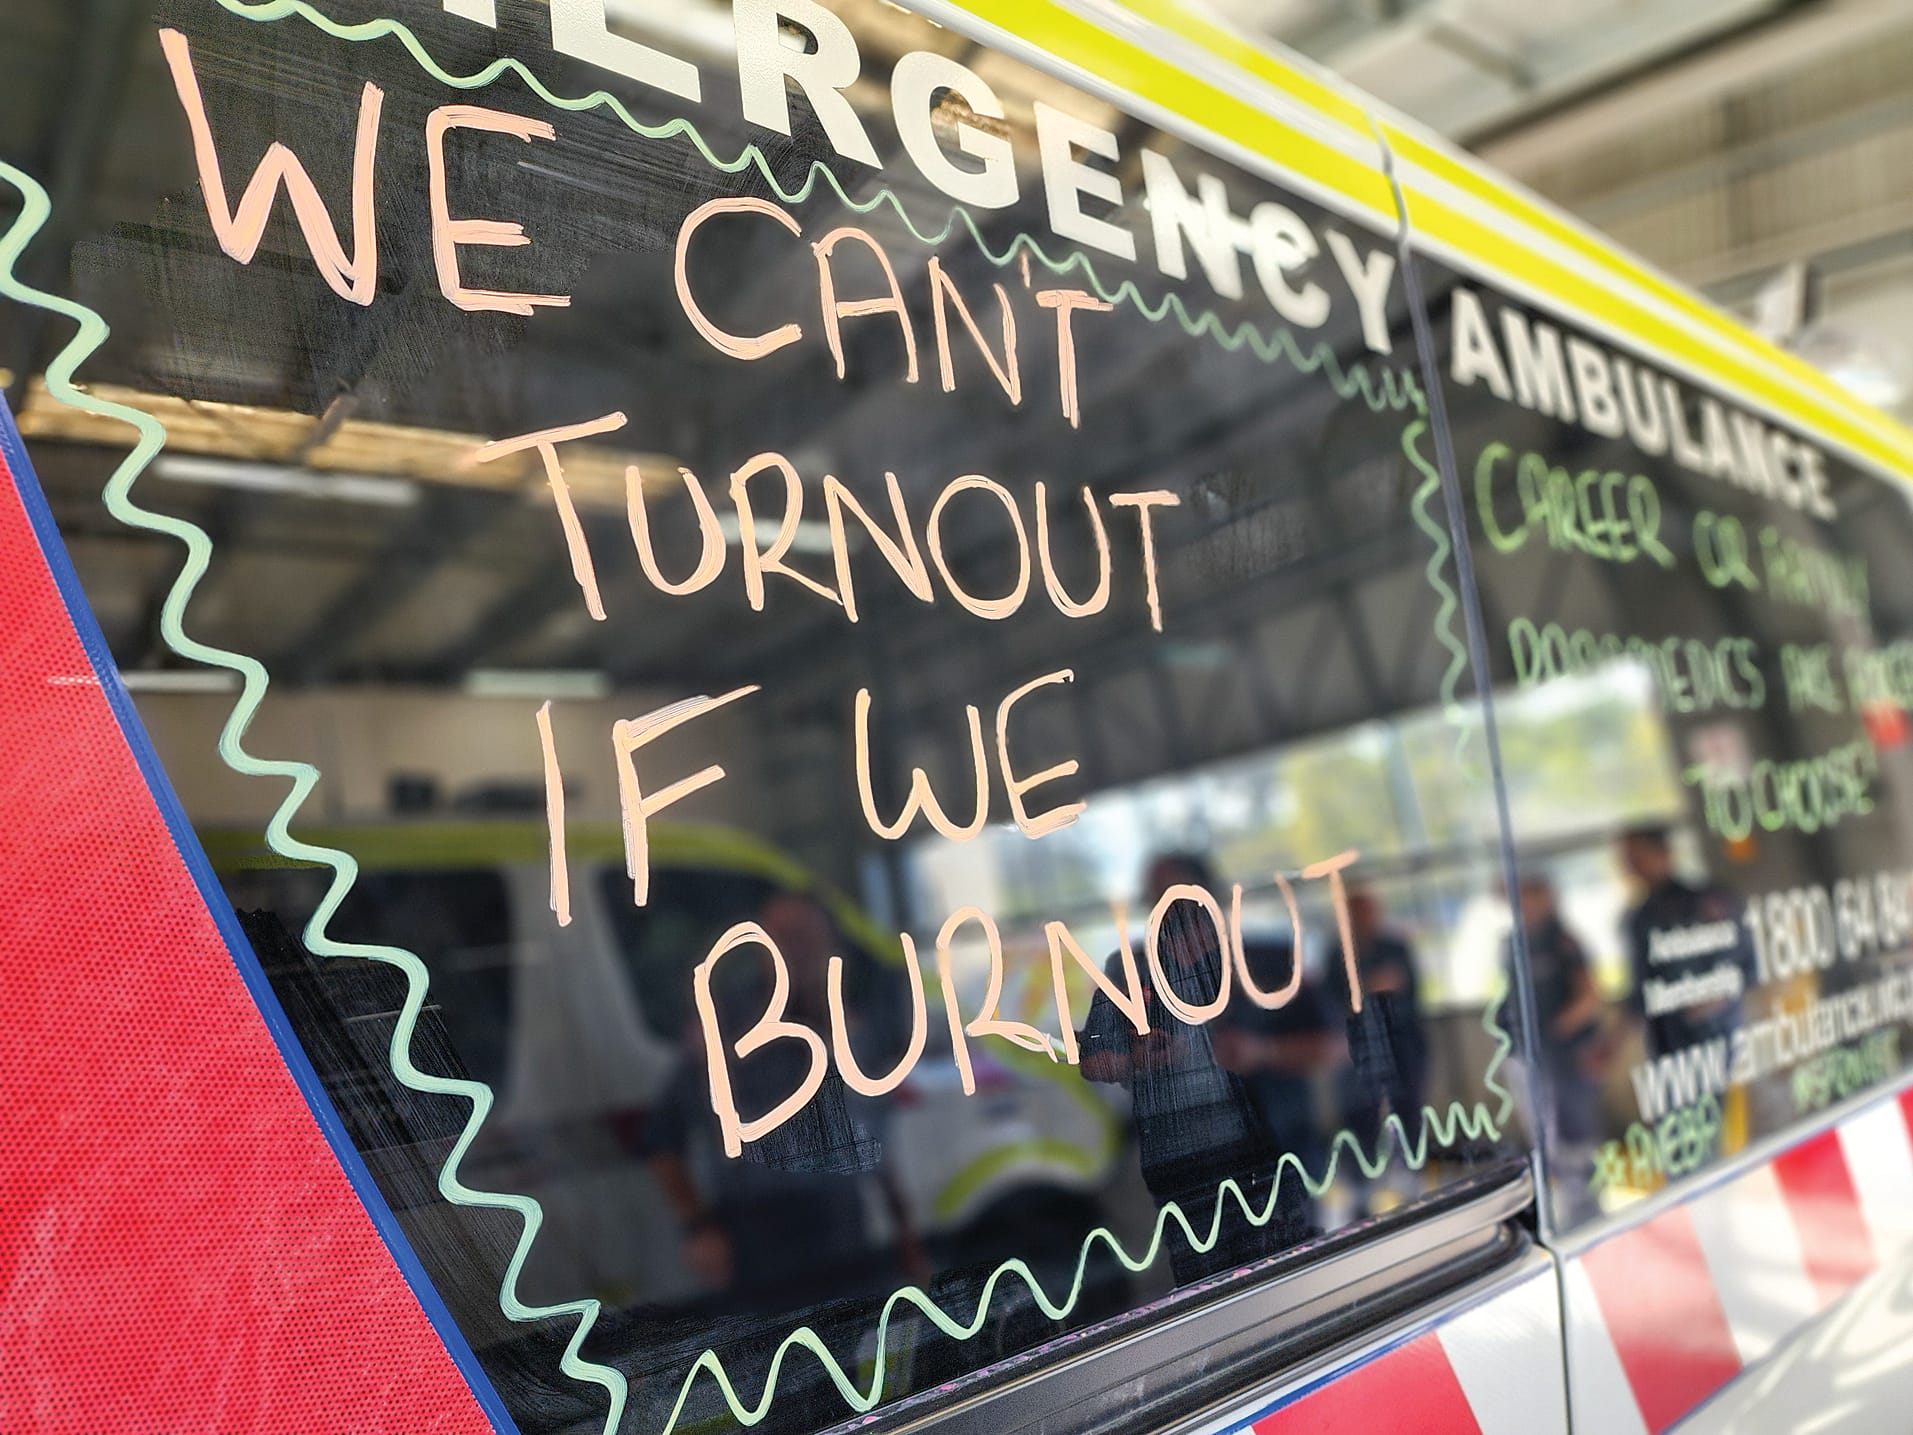 EMERGENCY AMBULANCE
WE CAN'T
TURNOUT
IF WE
BURNOUT
CAREER OR FAMILY
PARAMEDICS ARE
TO CHOOSE
Ambulance
Membership
1800 64 84
www.ambulance.vic